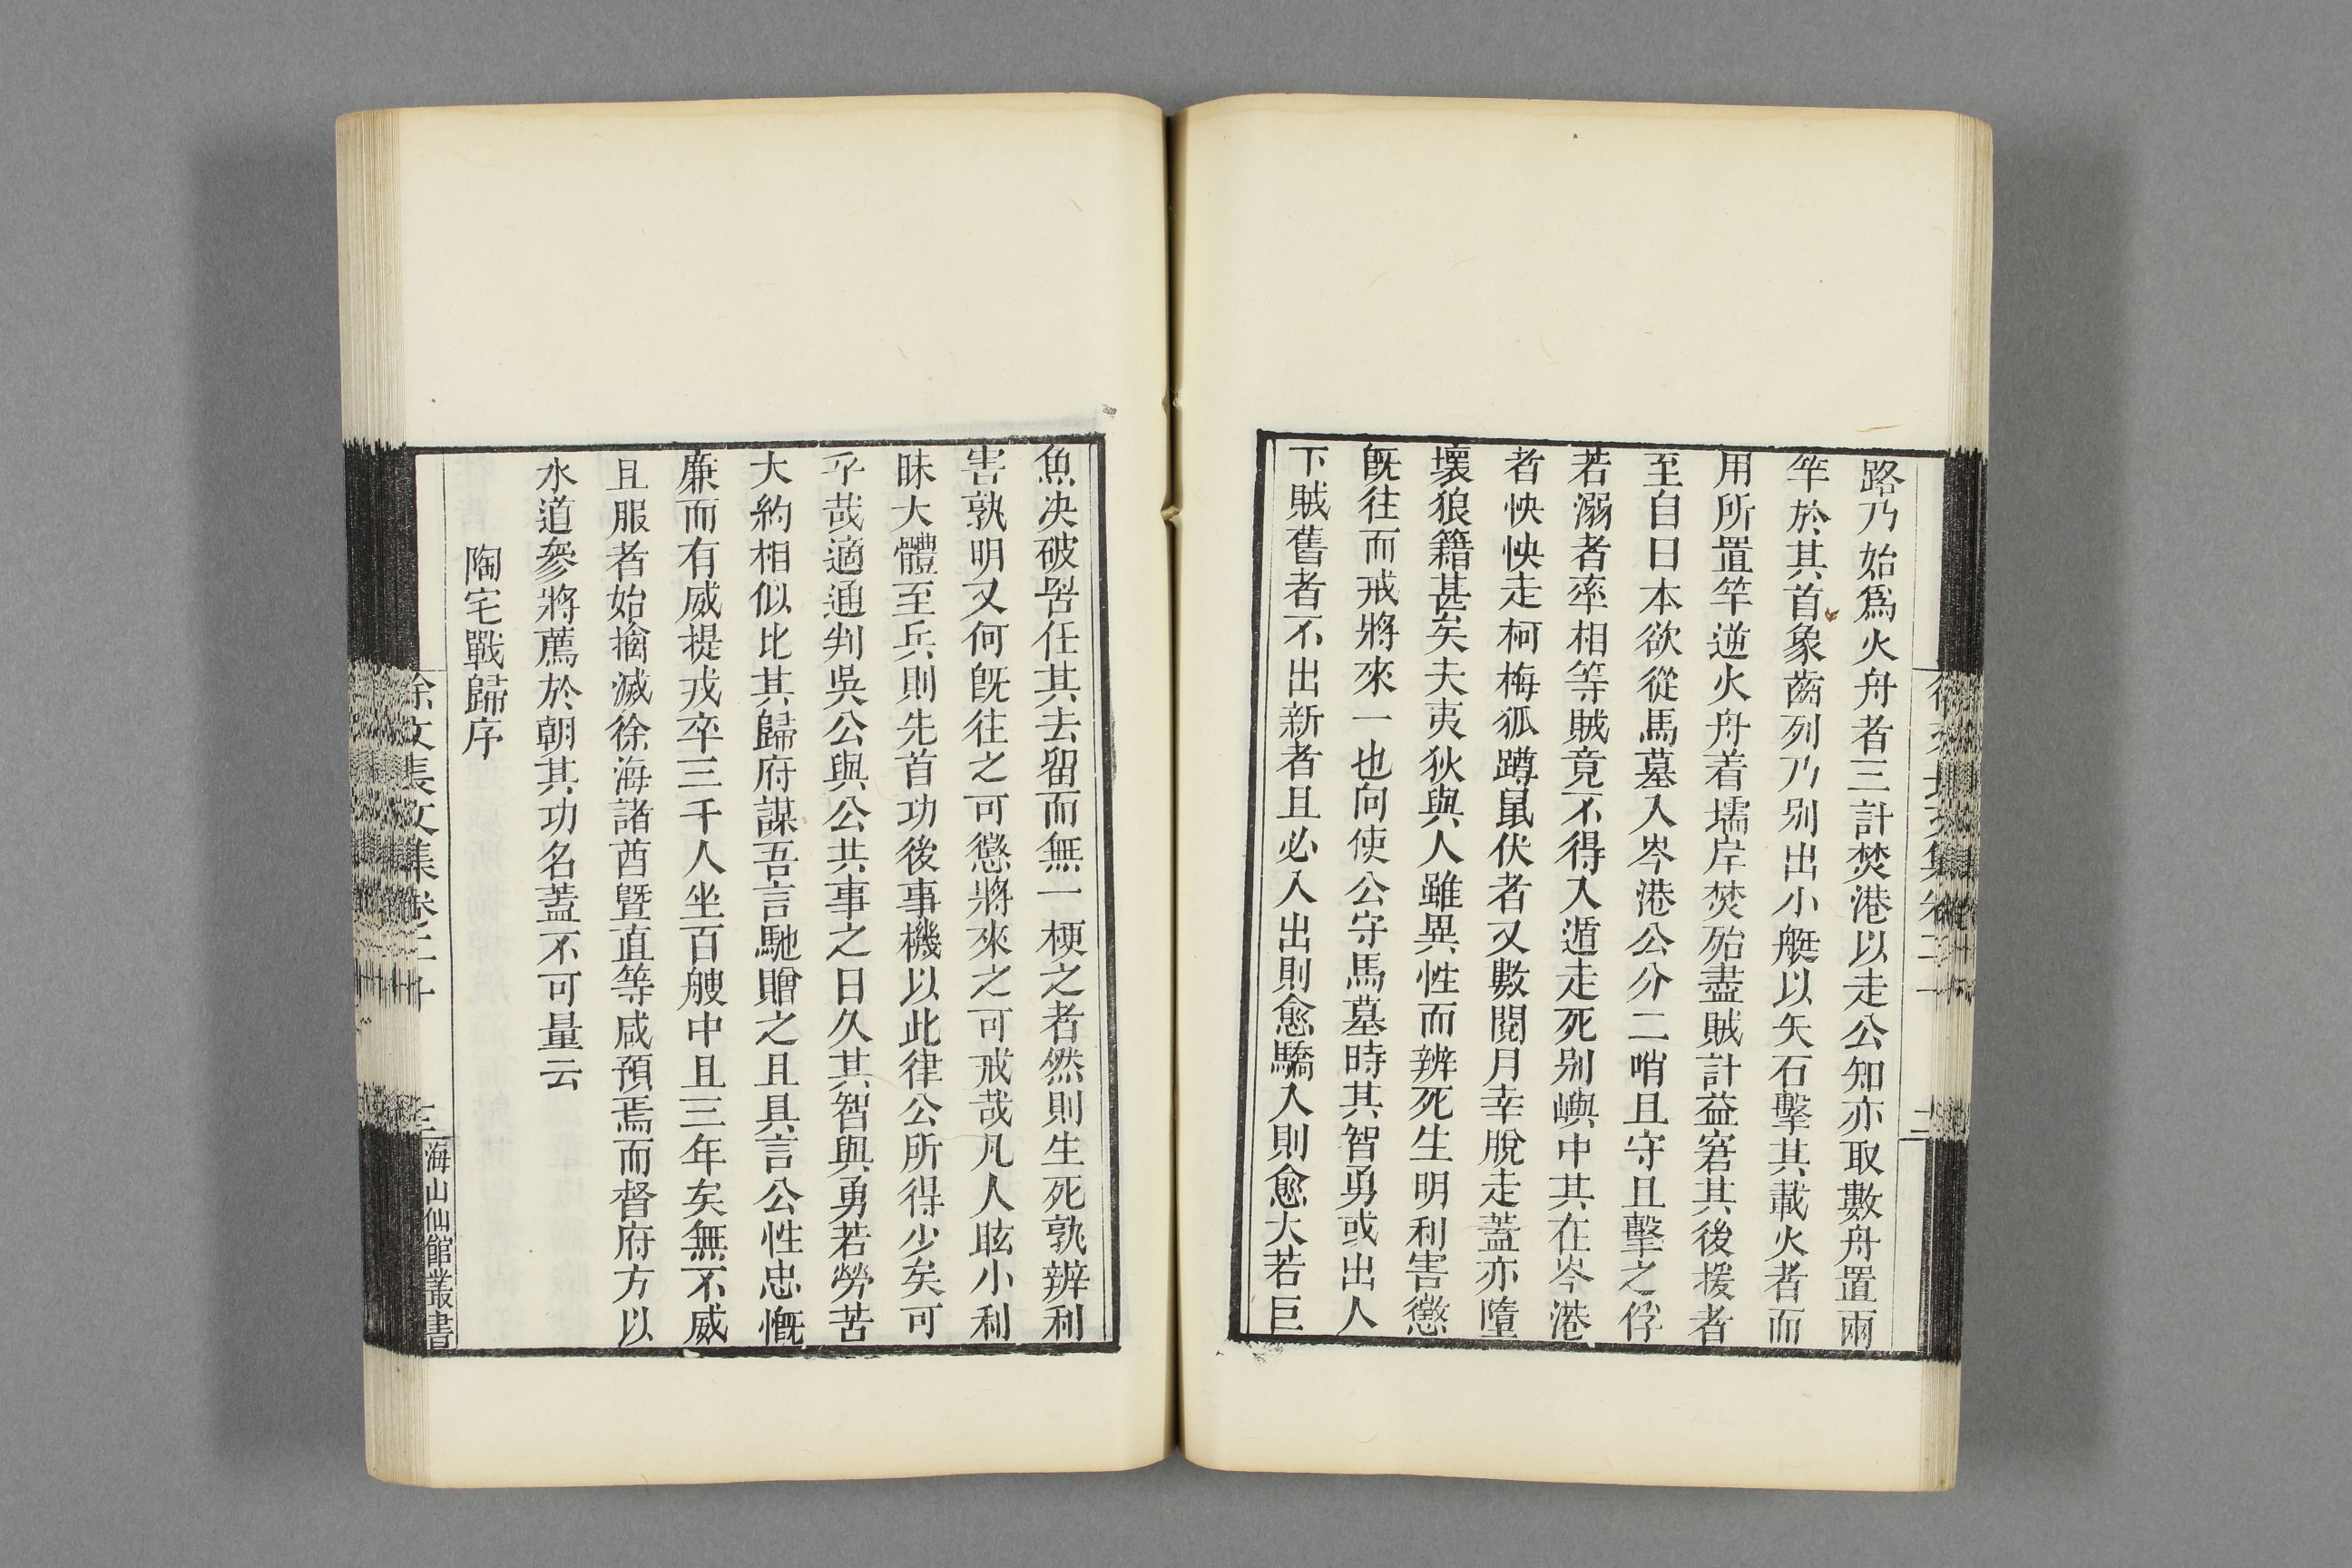 路乃始爲火舟者三計焚港以走公知亦取數舟置兩
竿於其首象齒列乃别出小艇以矢石擊其載火者而
用所置竿逆火舟着壖岸焚殆盡賊計益窘其後援者
至自日本欲從馬墓入岑港公分二哨且守且擊之俘
若溺者率相等賊竟不得入遁走死别嶼中其在岑港
者怏怏走柯梅狐蹲鼠伏者又數閱月幸脫走蓋亦墮
壞狼籍甚矣夫夷狄與人雖異性而辨死生明利害懲
旣往而戒將來一也向使公守馬墓時其智勇或出人
下賊舊者不出新者且必入出則愈驕入則愈大若巨
魚决破罟任其去留而無一梗之者然則生死孰辨利
害孰明又何旣往之可懲將來之可戒哉凡人眩小利
昧大體至兵則先首功後事機以此律公所得少矣可
乎哉適通判吳公與公共事之日久其智與勇若勞苦
大約相似比其歸府謀吾言馳贈之且具言公性忠慨
廉而有威提戎卒三千人坐百艘中且三年矣無不威
且服者始擒滅徐海諸酋曁直等咸預焉而督府方以
水道參將薦於朝其功名蓋不可量云
陶宅戰歸序
徐文長文集卷二十
三
海山仙館叢書